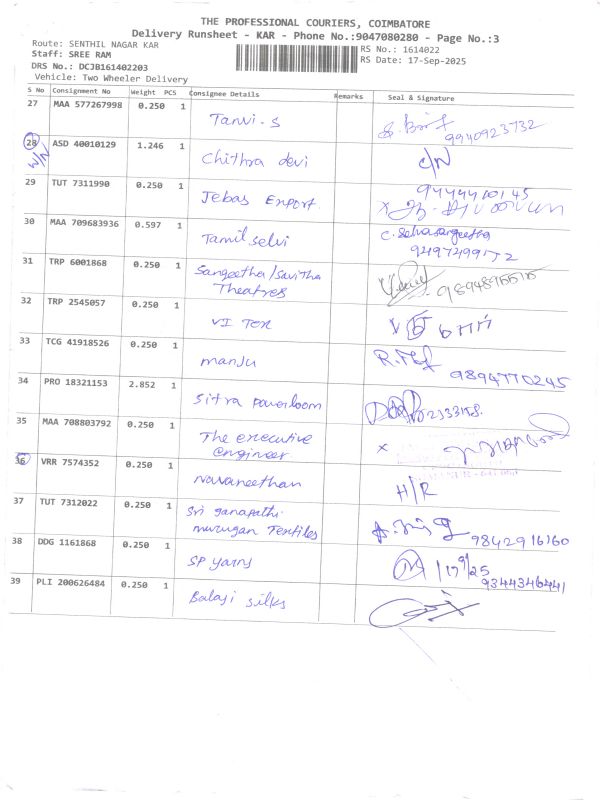 THE PROFESSIONAL COURIERS, COIMBATORE
Delivery Runsheet - KAR - Phone No.:9047080280 - Page No.:3
Route: SENTHIL NAGAR KAR
Staff: SREE RAM
DRS No.: DCJB161402203
Vehicle: Two Wheeler Delivery
RS No.: 1614022
RS Date: 17-Sep-2025
S No Consignment No Weight PCS Consignee Details Remarks Seal & Signature
27 MAA 577267998 0.250 1 Tanvi.s 9940923732
28 ASD 40010129 1.246 1 Chithra devi C/N
N/N
29 TUT 7311990 0.250 1 Jebas Export.
30 MAA 709683936 0.597 1 Tamil selvi C. Selvasangeetha
9497299172
31 TRP 6001868 0.250 1 Sangeetha/Savitha
Theatres
32 TRP 2545057 0.250 1 VI Tex
33 TCG 41918526 0.250 1 manju 9894770245
34 PRO 18321153 2.852 1 Sitra powerloom
35 MAA 708803792 0.250 1 The executive
engineer
x
36 VRR 7574352 0.250 1 Navaneethan H/R
37 TUT 7312022 0.250 1 Sri ganapathi
murugan Textiles 9842916160
38 DDG 1161868 0.250 1 SP yarns 17/9/25
9344346441
39 PLI 200626484 0.250 1 Balaji silks